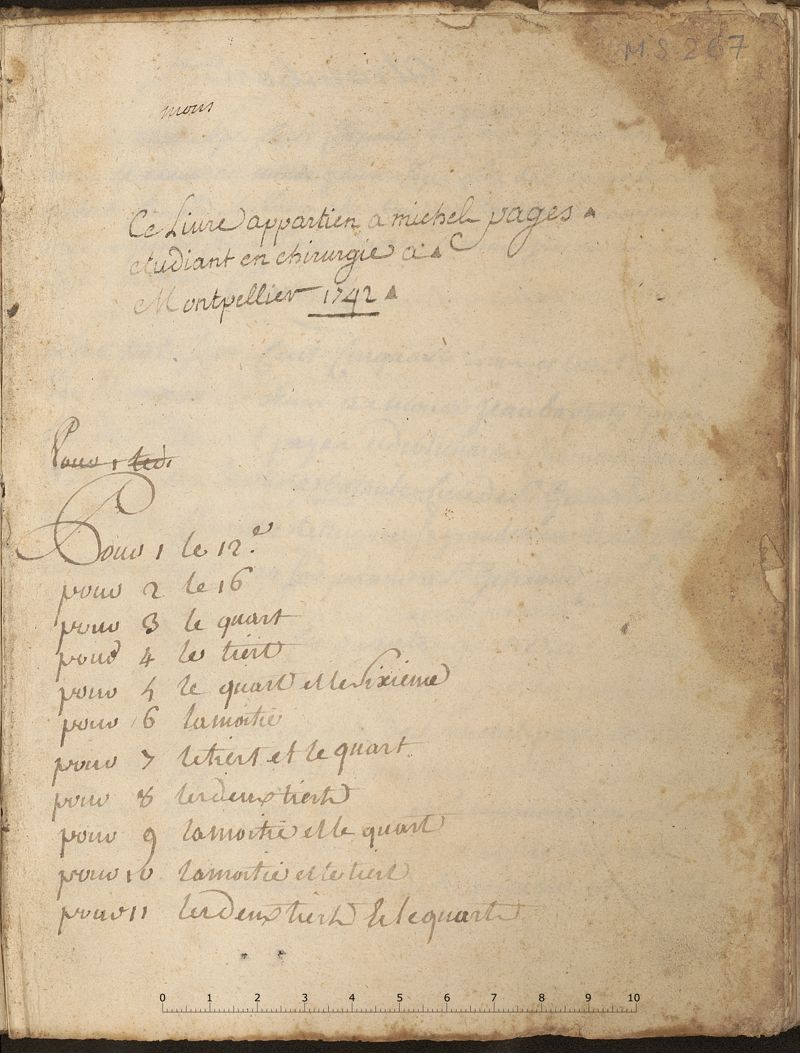 MS 267
mons
Ce Livre appartien a michel pages
etudiant en chirurgie a
Montpellier 1742
Pour 1 le
Pour 1 le 12.e
pour 2 le 16
pour 3 le quart
pour 4 le tiert
pour 5 le quart et le sixieme
pour 6 la moitié
pour 7 le tiert et le quart
pour 8 les deux tiert
pour 9 la moitie et le quart
pour 10 la moitie et le tiert
pour 11 les deux tiert & le quart
0 1 2 3 4 5 6 7 8 9 10